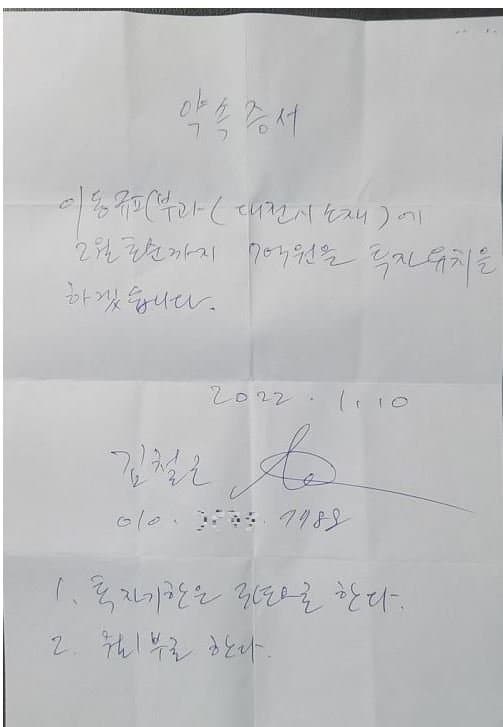 약속증서
이동규피부과(대전시소재)에
2월초순까지 7억원을 투자유치를
하겠습니다.
2022. 1. 10
김철근
010. 7788
1. 투자기한은 으로 한다.
2. 부로 한다.